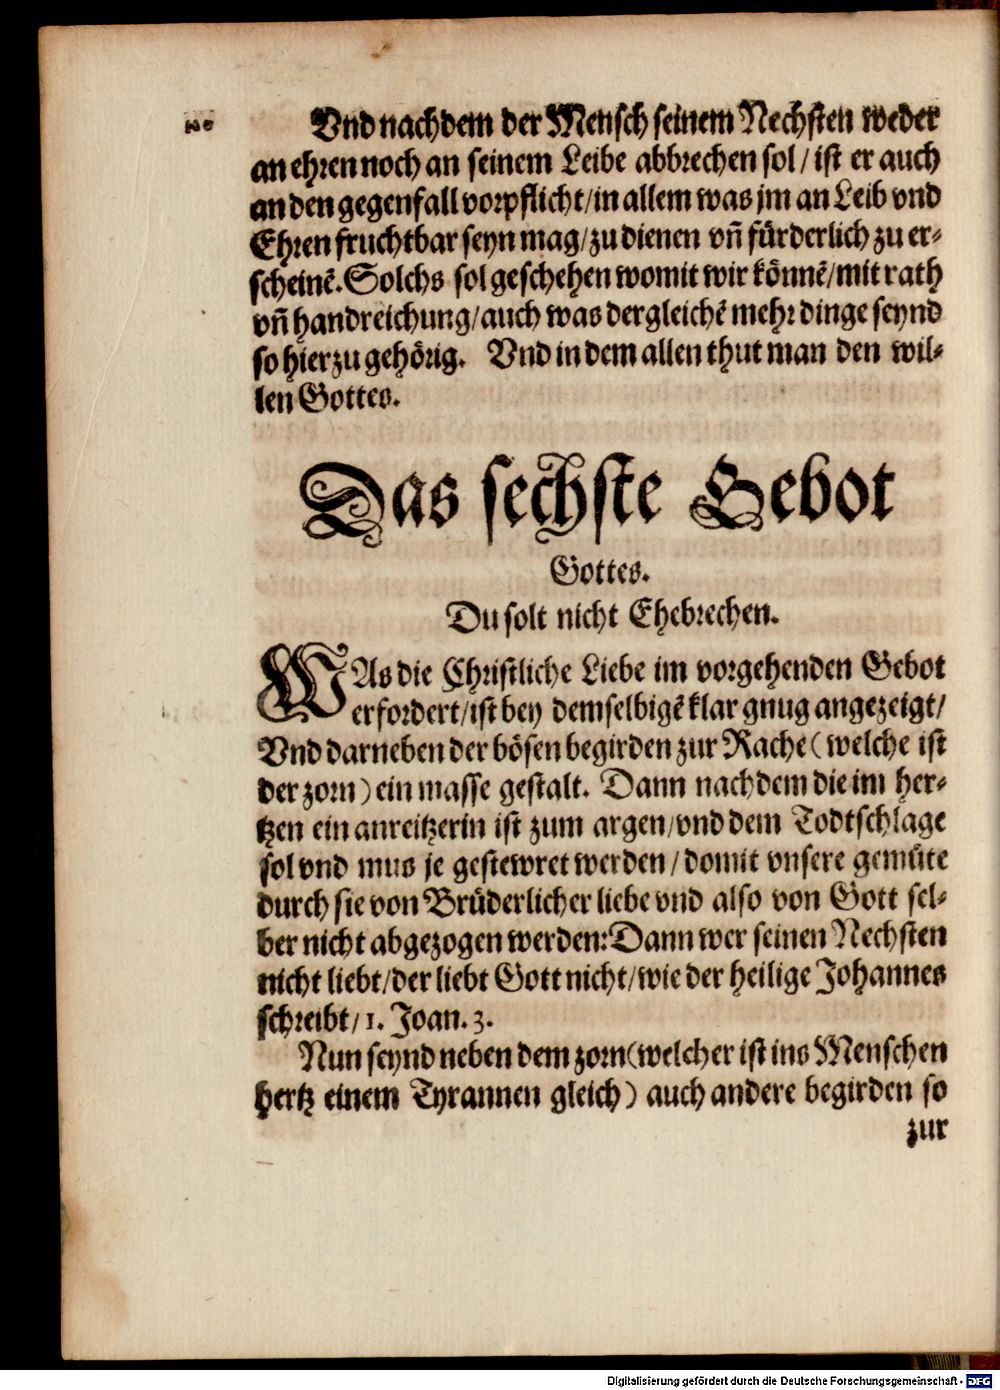 Vnd nachdem der Mensch seinem Nechsten weder
an ehren noch an seinem Leibe abbrechen sol / ist er auch
an den gegenfall vorpflicht / in allem was jm an Leib vnd
Ehren fruchtbar seyn mag / zu dienen vñ fürderlich zu er-
scheinẽ. Solchs sol geschehen womit wir könnẽ / mit rath
vñ handreichung / auch was dergleichẽ mehr dinge seynd
so hierzu gehörig. Vnd in dem allen thut man den wil-
len Gottes.
Das sechste Gebot
Gottes.
Du solt nicht Ehebrechen.
WAs die Christliche Liebe im vorgehenden Gebot
erfordert / ist bey demselbigẽ klar gnug angezeigt /
Vnd darneben der bösen begirden zur Rache ( welche ist
der zorn ) ein masse gestalt. Dann nachdem die im her-
tzen ein anreitzerin ist zum argen / vnd dem Todtschlage
sol vnd mus je gestewret werden / domit vnsere gemüte
durch sie von Brüderlicher liebe vnd also von Gott sel-
ber nicht abgezogen werden: Dann wer seinen Nechsten
nicht liebt / der liebt Gott nicht / wie der heilige Johannes
schreibt / 1. Joan. 3.
Nun seynd neben dem zorn ( welcher ist ins Menschen
hertz einem Tyrannen gleich ) auch andere begirden so
zur
Digitalisierung gefördert durch die Deutsche Forschungsgemeinschaft - DFG